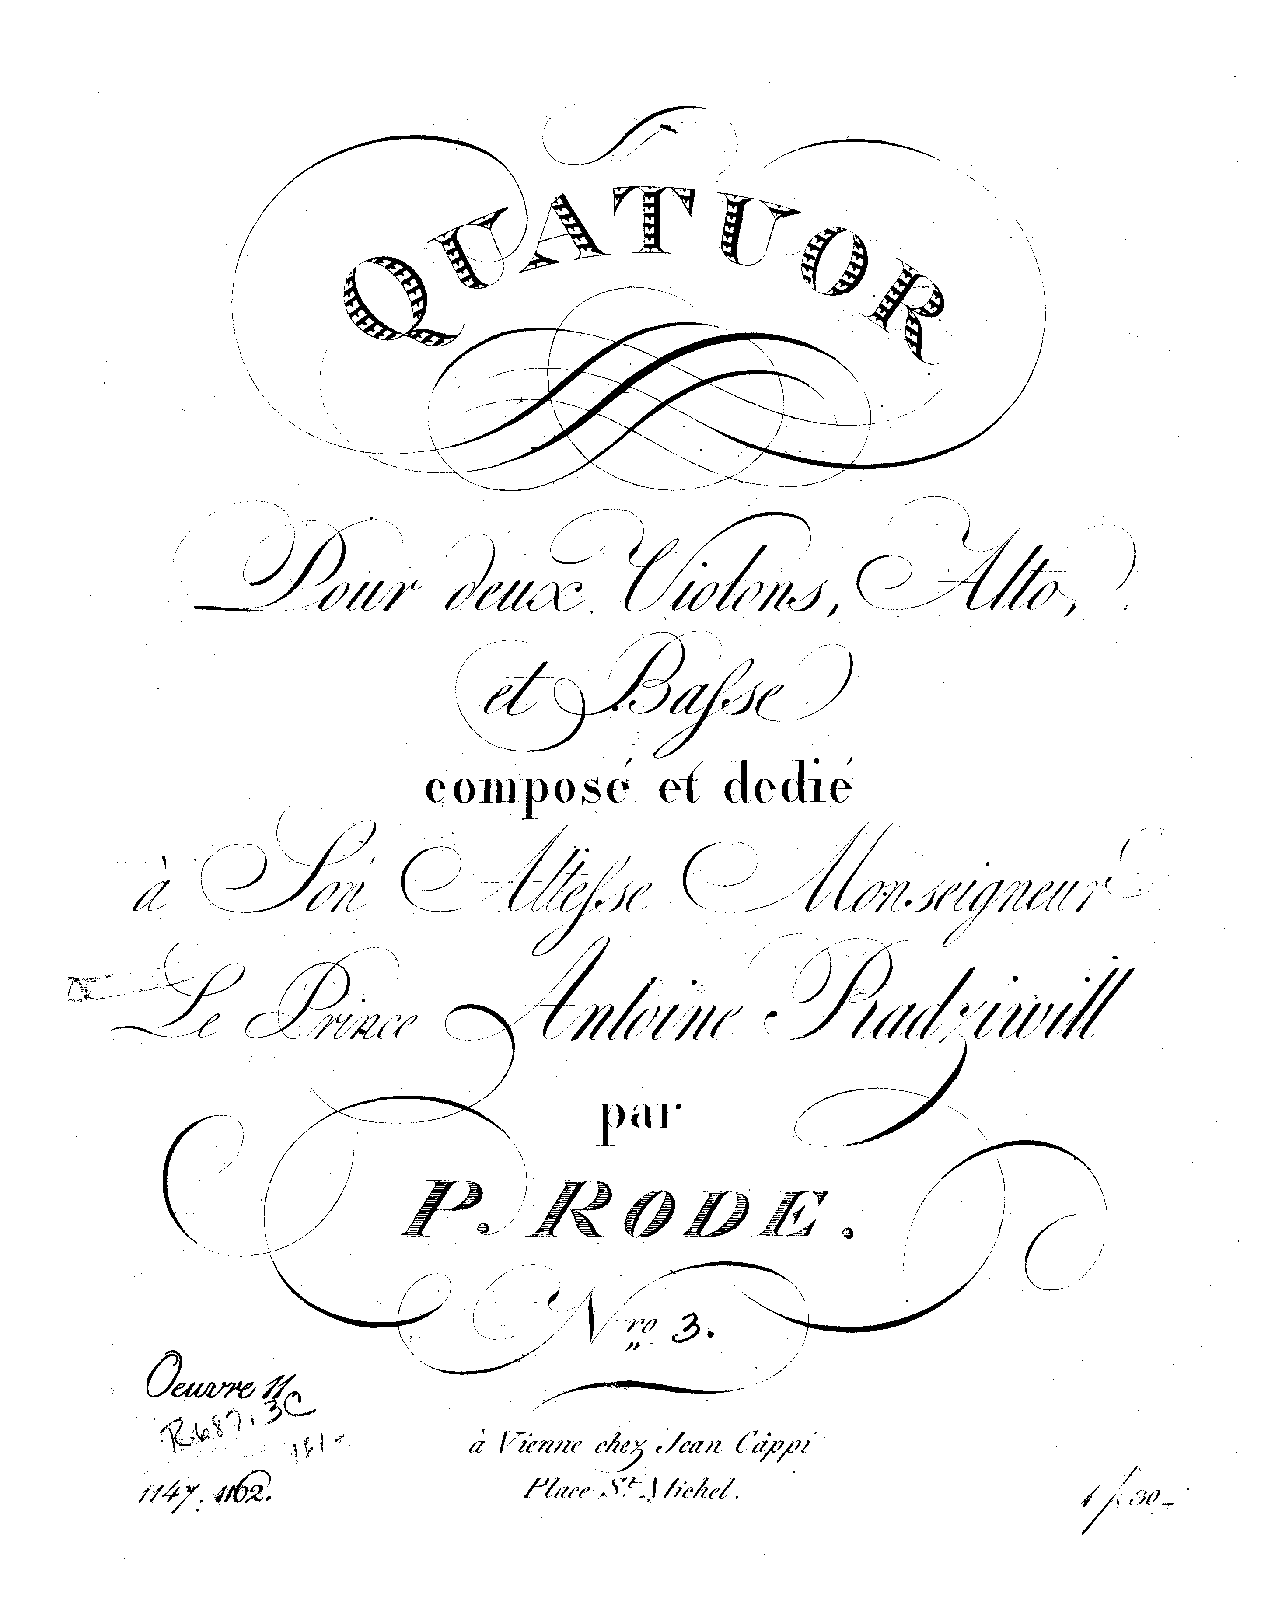 QUATUOR
Pour deux Violons, Alto,
et Baſse
composé et dedié
à Son Alteſse Monseigneur
Le Prince Antoine Radziwill
par
P. RODE.
Nro 3.
Oeuvre 11
R687.3C
161-
à Vienne chez Jean Cappi
Place St. Michel.
1147. 1162.
1 f 30